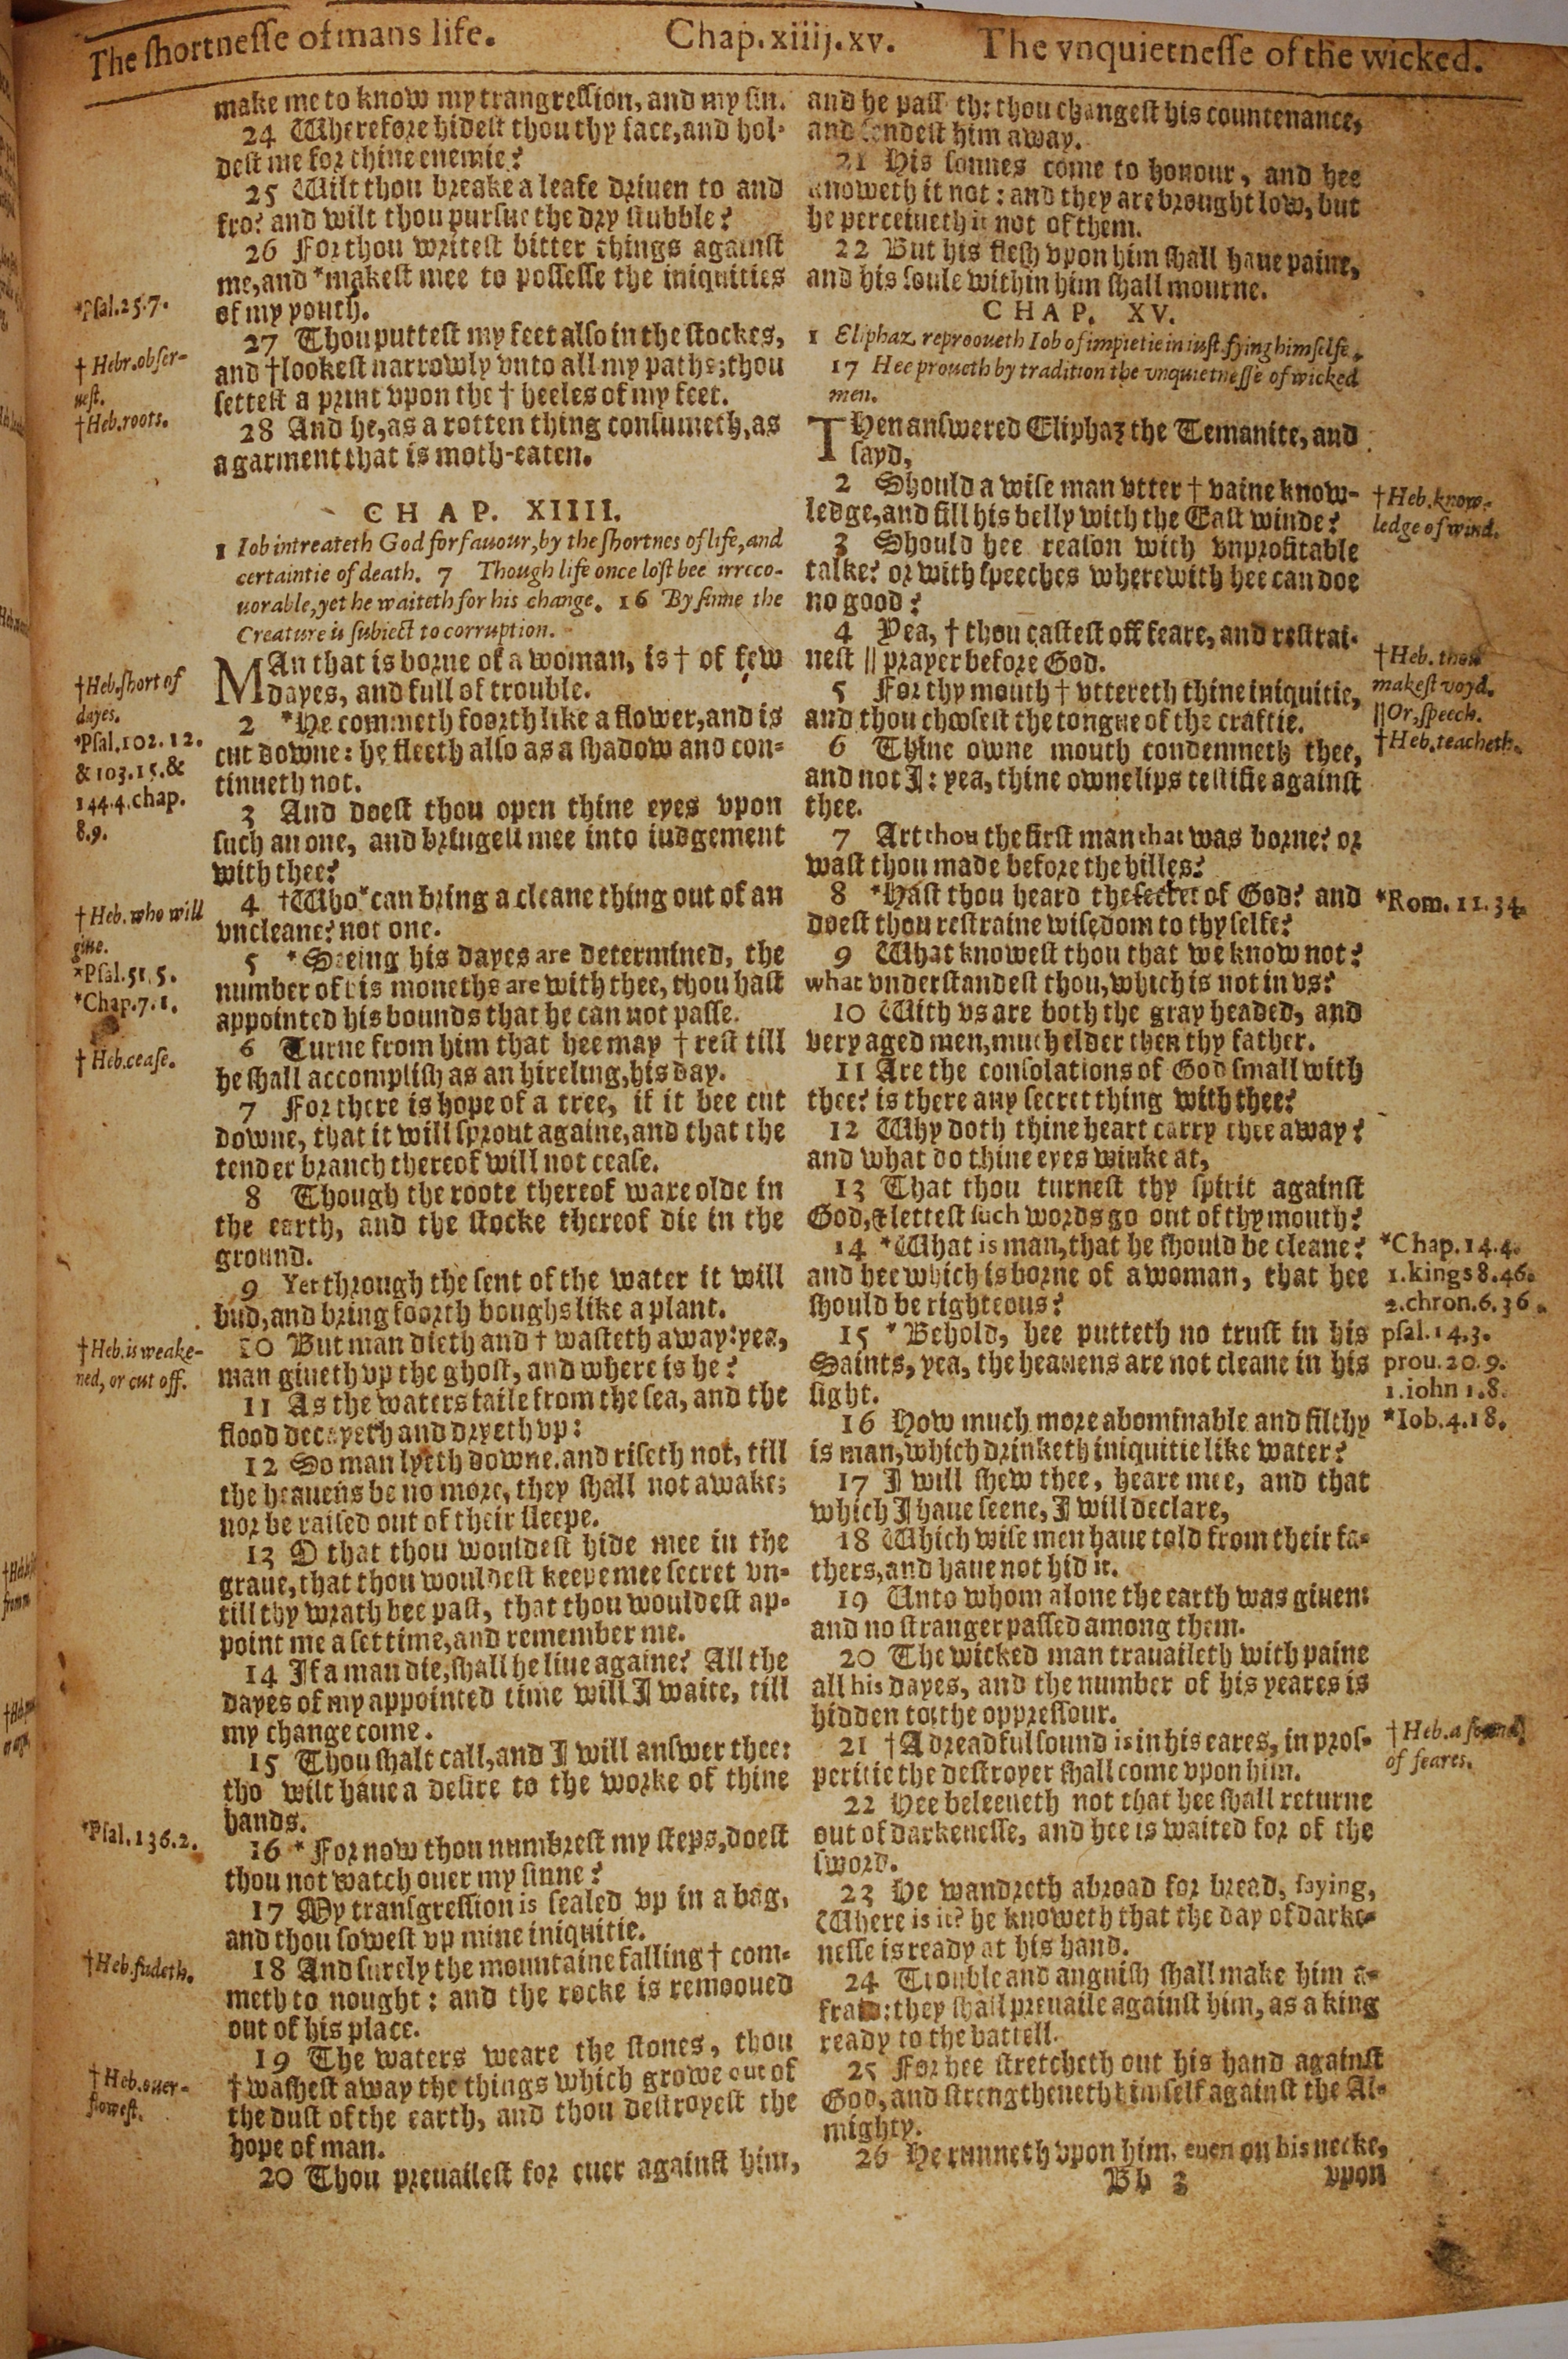 The shortnesse of mans life. Chap.xiiij.xv. The vnquietnesse of the wicked.
make me to know my trangression, and my sin.
24 Wherefore hidest thou thy face, and hol-
dest me for thine enemie?
25 Wilt thou breake a leafe driuen to and
fro? and wilt thou pursue the dry stubble?
26 For thou writest bitter things against
me, and *makest mee to possesse the iniquities
of my youth.
27 Thou puttest my feet also in the stockes,
and †lookest narrowly vnto all my paths; thou
settest a print vpon the † heeles of my feet.
28 And he, as a rotten thing consumeth, as
a garment that is moth-eaten.
*Psal.25.7.
† Hebr.obser-
uest.
†Heb.roots.
CHAP. XIIII.
1 Iob intreateth God for fauour, by the shortnes of life, and
certaintie of death. 7 Though life once lost bee irreco-
uorable, yet he waiteth for his change. 16 By sinne the
Creature is subiect to corruption.
MAn that is borne of a woman, is † of few
dayes, and full of trouble.
2 *He commeth foorth like a flower, and is
cut downe: he fleeth also as a shadow and con-
tinueth not.
3 And doest thou open thine eyes vpon
such an one, and bringest mee into iudgement
with thee?
4 †Who *can bring a cleane thing out of an
vncleane? not one.
5 *Seeing his dayes are determined, the
number of his moneths are with thee, thou hast
appointed his bounds that he can not passe.
6 Turne from him that hee may † rest till
he shall accomplish as an hireling, his day.
7 For there is hope of a tree, if it bee cut
downe, that it will sprout againe, and that the
tender branch thereof will not cease.
8 Though the roote thereof ware olde in
the earth, and the stocke thereof die in the
ground.
9 Yet through the sent of the water it will
bud, and bring foorth boughs like a plant.
10 But man dieth and † wasteth away: yea,
man giueth vp the ghost, and where is he?
11 As the waters faile from the sea, and the
flood decayeth and dryeth vp:
12 So man lyeth downe, and riseth not, till
the heauens be no more, they shall not awake;
nor be raised out of their sleepe.
13 O that thou wouldest hide mee in the
graue, that thou wouldest keepe mee secret vn-
till thy wrath bee past, that thou wouldest ap-
point me a set time, and remember me.
14 If a man die, shall he liue againe? All the
dayes of my appointed time will I waite, till
my change come.
15 Thou shalt call, and I will answer thee:
tho wilt haue a desire to the worke of thine
hands.
16 * For now thou numbrest my steps, doest
thou not watch ouer my sinne?
17 My transgression is sealed vp in a bag,
and thou sowest vp mine iniquitie.
18 And surely the mountaine falling † com-
meth to nought: and the rocke is remooued
out of his place.
19 The waters weare the stones, thou
† washest away the things which growe out of
the dust of the earth, and thou destroyest the
hope of man.
20 Thou preuailest for euer against him,
†Heb.short of
dayes.
*Psal.102.12.
& 103.15.&
144.4.chap.
8.9.
†Heb. who will
giue.
*Psal.51.5.
*Chap.7.1.
† Heb.cease.
†Heb.is weake-
ned, or cut off.
*Psal.136.2.
†Heb.fadeth.
†Heb.ouer-
flowest.
and he passeth: thou changest his countenance,
and sendest him away.
21 His sonnes come to honour, and hee
knoweth it not: and they are brought low, but
he perceiueth it not of them.
22 But his flesh vpon him shall haue paine,
and his soule within him shall mourne.
CHAP. XV.
1 Eliphaz reprooueth Iob of impietie in iustifying himselfe.
17 Hee proueth by tradition the vnquietnesse of wicked
men.
THen answered Eliphaz the Temanite, and
sayd,
2 Should a wise man vtter † vaine know-
ledge, and fill his belly with the East winde?
3 Should hee reason with vnprofitable
talke? or with speeches wherewith hee can doe
no good?
4 Yea, † thou castest off feare, and restrai-
nest || prayer before God.
5 For thy mouth † vttereth thine iniquitie,
and thou choosest the tongue of the craftie.
6 Thine owne mouth condemneth thee,
and not I: yea, thine owne lips testifie against
thee.
7 Art thou the first man that was borne? or
wast thou made before the hilles?
8 *Hast thou heard the secret of God? and
doest thou restraine wisedom to thy selfe?
9 What knowest thou that we know not?
what vnderstandest thou, which is not in vs?
10 With vs are both the gray headed, and
very aged men, much elder then thy father.
11 Are the consolations of God small with
thee? is there any secret thing with thee?
12 Why doth thine heart carry thee away?
and what do thine eyes winke at,
13 That thou turnest thy spirit against
God, & lettest such words go out of thy mouth?
14 *What is man, that he should be cleane?
and hee which is borne of a woman, that hee
should be righteous?
15 * Behold, hee putteth no trust in his
Saints, yea, the heauens are not cleane in his
sight.
16 How much more abominable and filthy
is man, which drinketh iniquitie like water?
17 I will shew thee, heare mee, and that
which I haue seene, I will declare,
18 Which wise men haue told from their fa-
thers, and haue not hid it.
19 Unto whom alone the earth was giuen:
and no stranger passed among them.
20 The wicked man trauaileth with paine
all his dayes, and the number of his yeares is
hidden to the oppressour.
21 †A dreadful sound is in his eares, in pros-
peritie the destroyer shall come vpon him.
22 Hee beleeueth not that hee shall returne
out of darkenesse, and hee is waited for of the
sword.
23 He wandreth abroad for bread, saying,
Where is it? he knoweth that the day of darke-
nesse is ready at his hand.
24 Trouble and anguish shall make him a-
fraid: they shall preuaile against him, as a king
ready to the battell.
25 For hee stretcheth out his hand against
God, and strengtheneth himself against the Al-
mighty.
26 He runneth vpon him, euen on his necke,
Bb 3 vpon
†Heb.know-
ledge of wind.
†Heb. thou
makest voyd.
||Or, speech.
†Heb.teacheth.
*Rom. 11.34.
*Chap.14.4.
1.kings 8.46.
2.chron.6.36.
psal.14.3.
prou.20.9.
1.iohn 1.8.
*Iob.4.18.
†Heb.a sound
of feares.